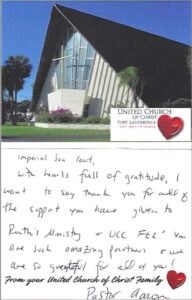 UNITED CHURCH
OF CHRIST
FORT LAUDERDALE
Imperial Sun Court,
with hearts full of gratitude, I
want to say thank you for all of
the support you have given to
Ruth's Ministry & UCC FTL! You
are such amazing partners & we
are so grateful for all of you!
From your United Church of Christ Family
Pastor